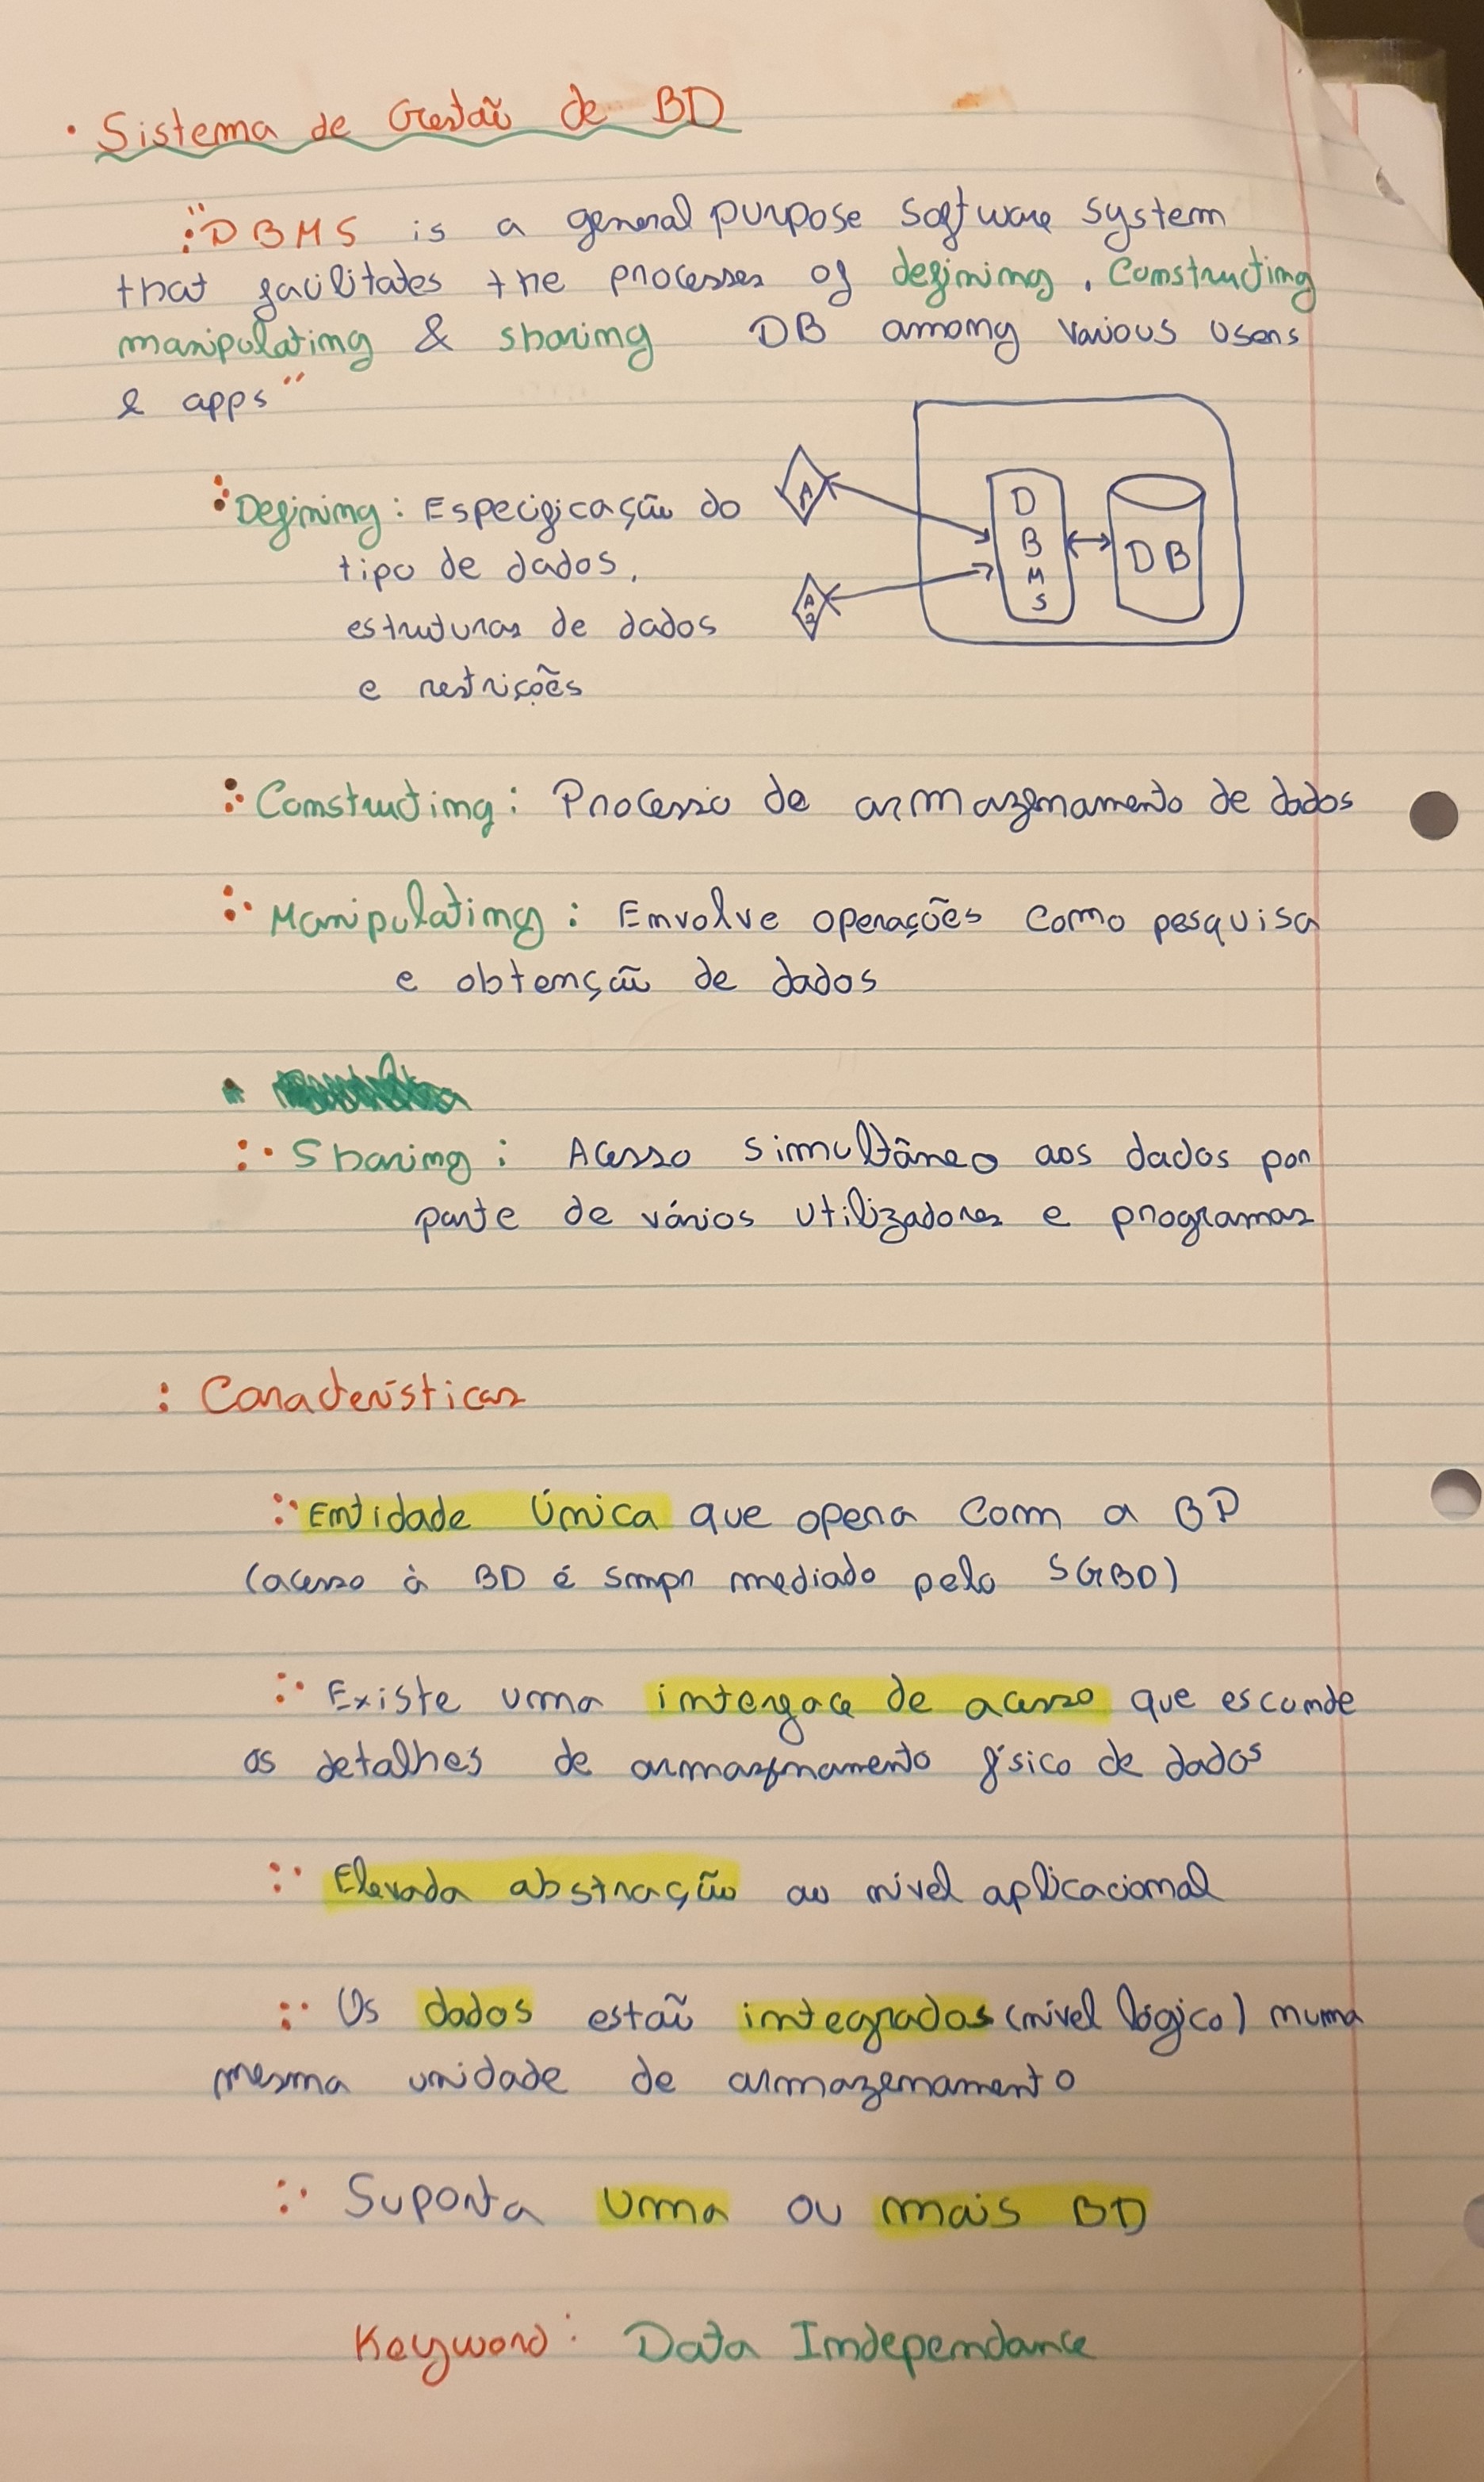 • Sistema de Gestão de BD
"DBMS is a general purpose software system
that facilitates the processes of defining, Constructing
manipulating & sharing DB among various users
& apps"
Defining: Especificação do
tipo de dados,
estruturas de dados
e restrições
A
A2
DBMS
DB
Constructing: Processo de armazenamento de dados
Manipulating: Envolve operações como pesquisa
e obtenção de dados
Sharing: Acesso simultâneo aos dados por
parte de vários utilizadores e programas
: Características
Entidade única que opera com a BD
(acesso à BD é smpr mediado pelo SGBD)
Existe uma interface de acesso que esconde
os detalhes de armazenamento físico de dados
Elevada abstração ao nível aplicacional
Os dados estão integrados (nível lógico) numa
mesma unidade de armazenamento
Suporta uma ou mais BD
Keyword: Data Independance